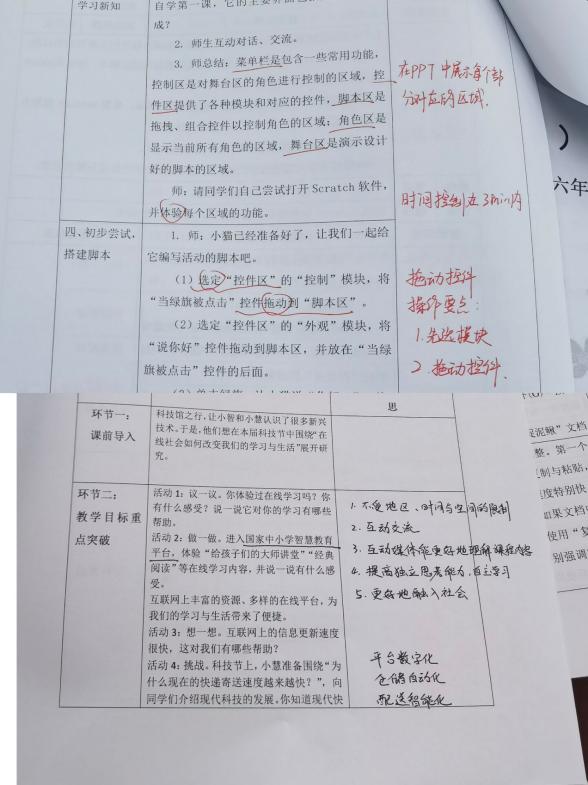 学习新知
自学第一课，它的主要界面
成？
2. 师生互动对话、交流。
3. 师总结：菜单栏是包含一些常用功能，
控制区是对舞台区的角色进行控制的区域，控
件区提供了各种模块和对应的控件，脚本区是
拖拽、组合控件以控制角色的区域；角色区是
显示当前所有角色的区域，舞台区是演示设计
好的脚本的区域。
在PPT中展示每个部
分对应的区域.
师：请同学们自己尝试打开 Scratch 软件，
并体验每个区域的功能。
时间控制在3min内
四、初步尝试，
搭建脚本
1. 师：小猫已经准备好了，让我们一起给
它编写活动的脚本吧。
（1）选定“控件区”的“控制”模块，将
“当绿旗被点击”控件拖动到“脚本区”。
（2）选定“控件区”的“外观”模块，将
“说你好”控件拖动到脚本区，并放在“当绿
旗被点击”控件的后面。
拖动控件
操作要点：
1.先选模块
2.拖动控件.
六年
思
环节一：
课前导入
科技馆之行，让小智和小慧认识了很多新兴
技术。于是，他们想在本届科技节中围绕“在
线社会如何改变我们的学习与生活”展开研
究。
环节二：
教学目标重
点突破
活动 1：议一议。你体验过在线学习吗？你
有什么感受？说一说它对你的学习有哪些
帮助。
活动 2：做一做。进入国家中小学智慧教育
平台，体验“给孩子们的大师讲堂”“经典
阅读”等在线学习内容，并说一说有什么感
受。
互联网上丰富的资源、多样的在线平台，为
我们的学习与生活带来了便捷。
活动 3：想一想。互联网上的信息更新速度
很快，这对我们有哪些帮助？
活动 4：挑战。科技节上，小慧准备围绕“为
什么现在的快递寄送速度越来越快？”，向
同学们介绍现代科技的发展。你知道现代快
1. 不受地区、时间与空间的限制
2. 互动交流
3. 互动媒体能更好地理解课程内容
4. 提高独立思考能力，自主学习
5. 更好地融入社会
平台数字化
仓储自动化
配送智能化
泥鳅”文档
整。第一个
制与粘贴，
度特别快
如果文档
使用“复
别强调